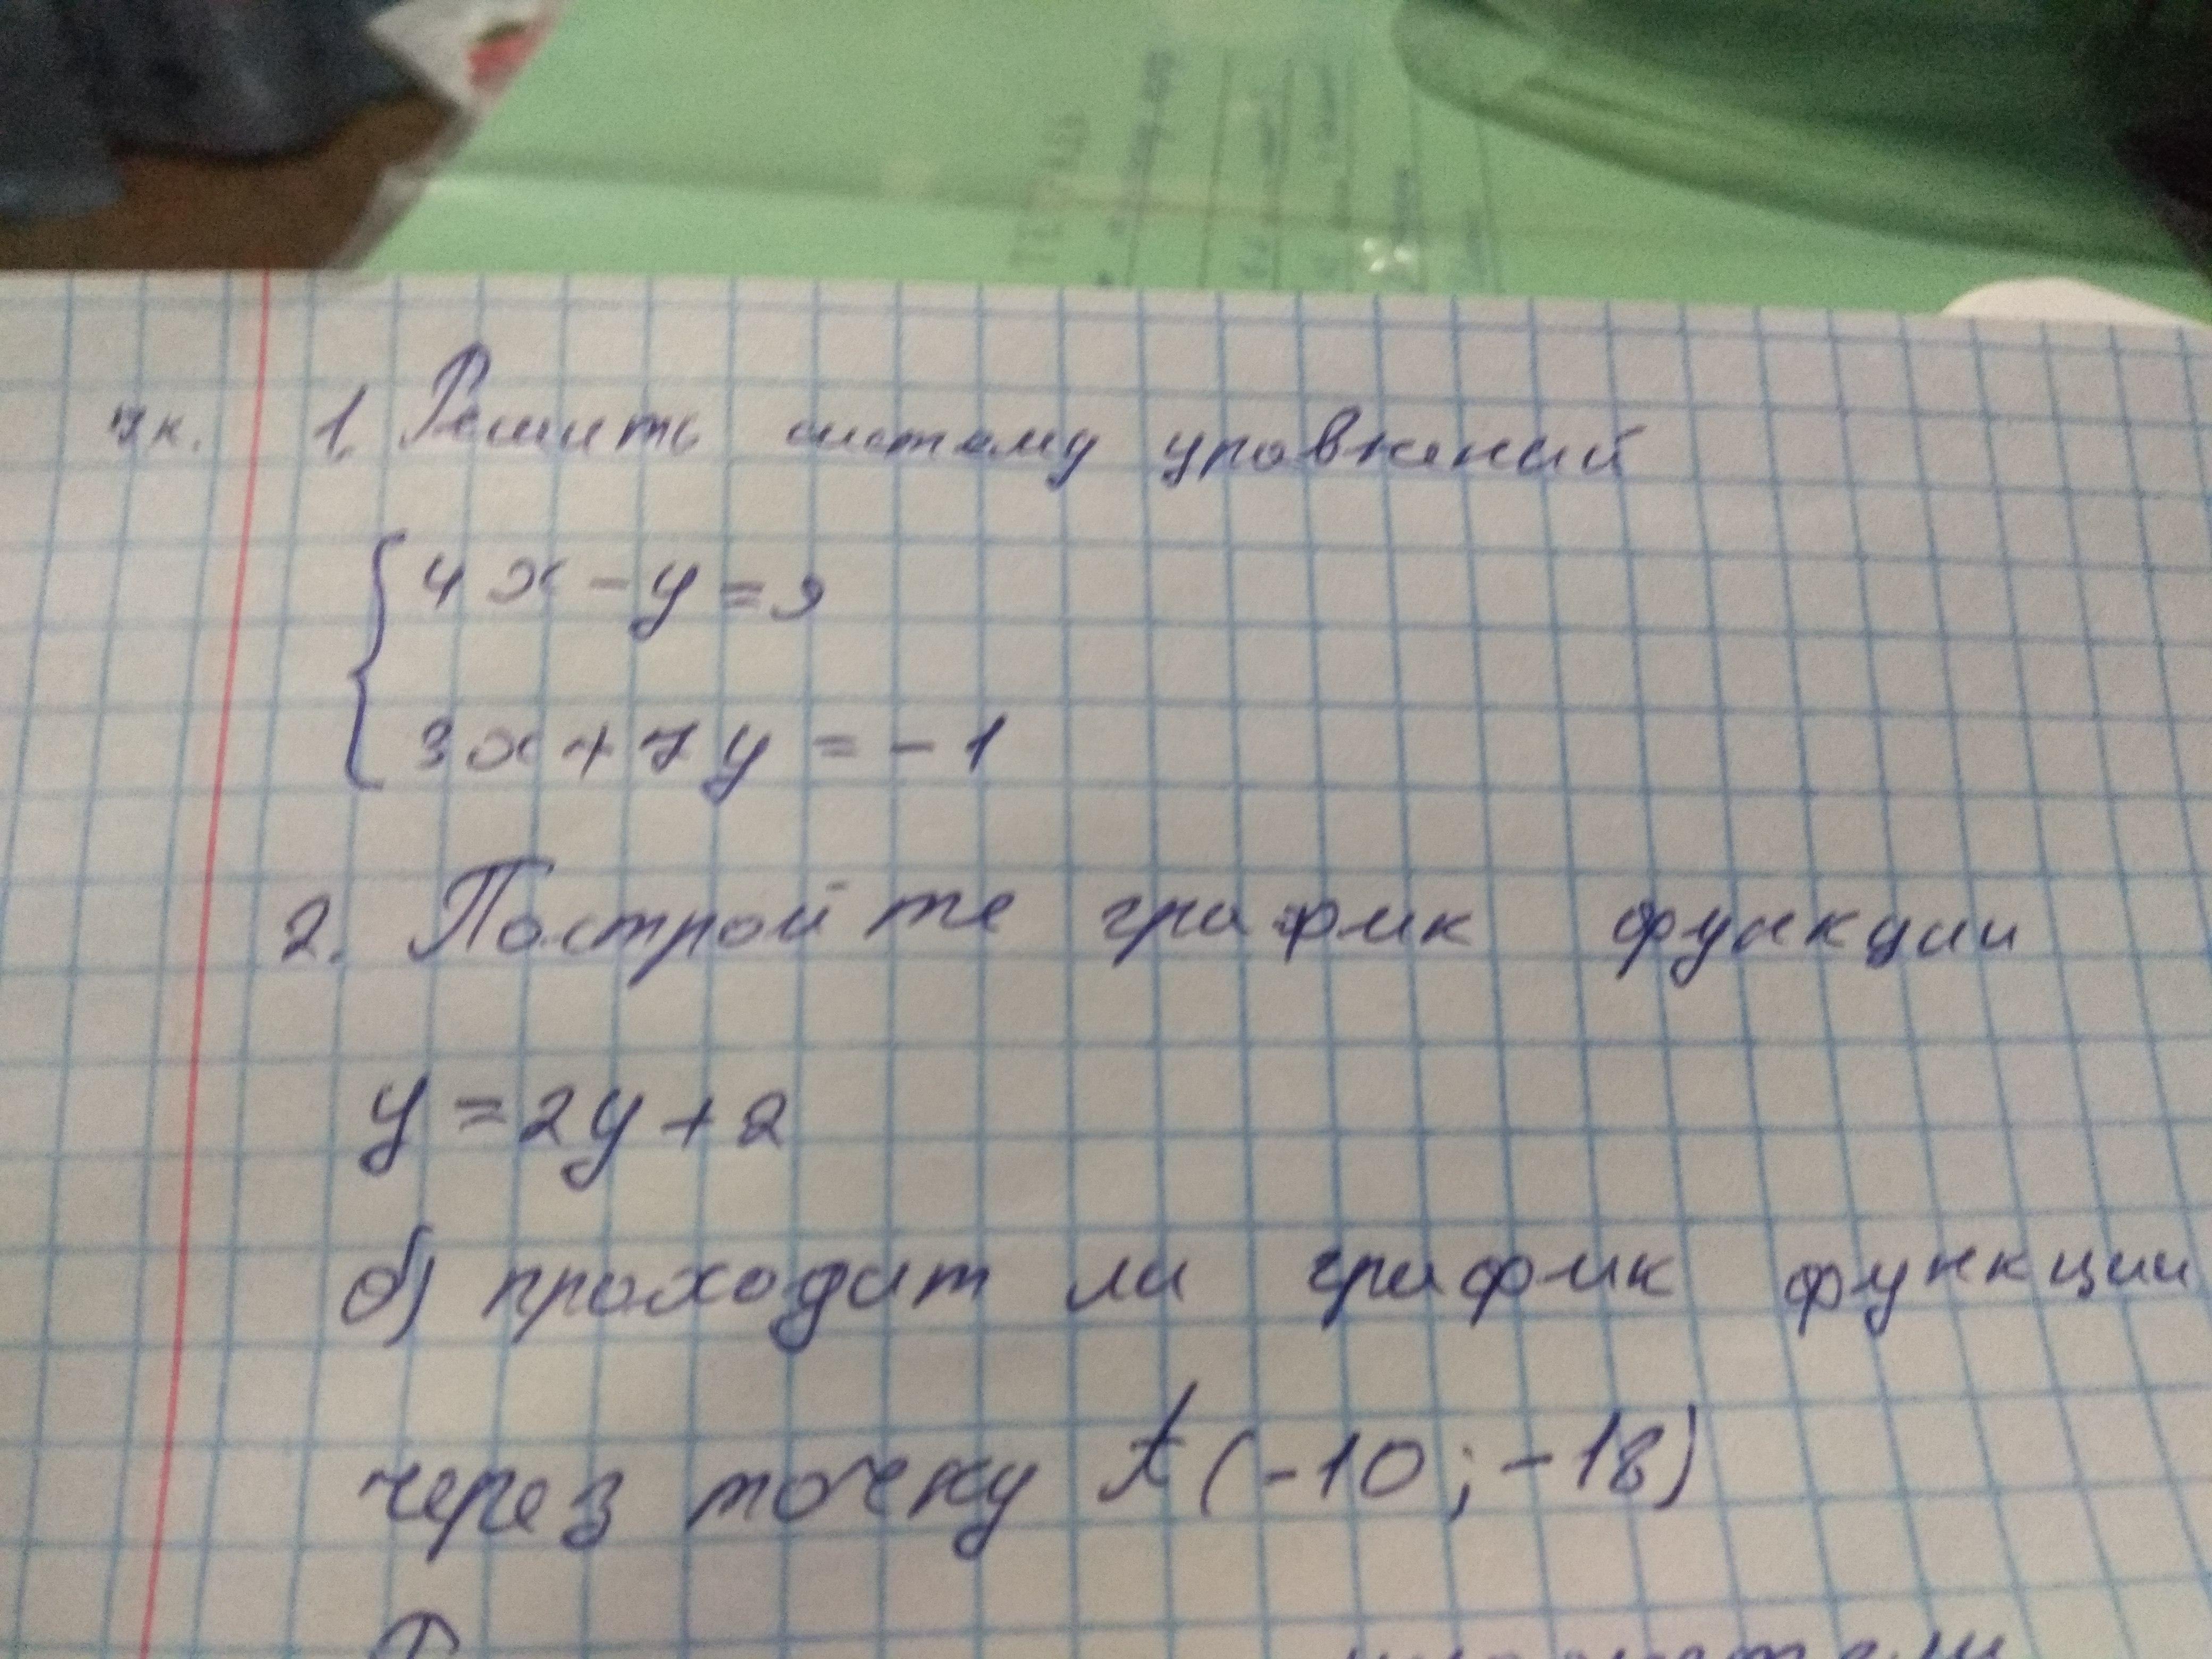 7к. 1. Решить систему уравнений
4x - y = 9
3x + 7y = -1
2. Постройте график функции
y = 2y + 2
б) проходит ли график функции
через точку A (-10; -18)